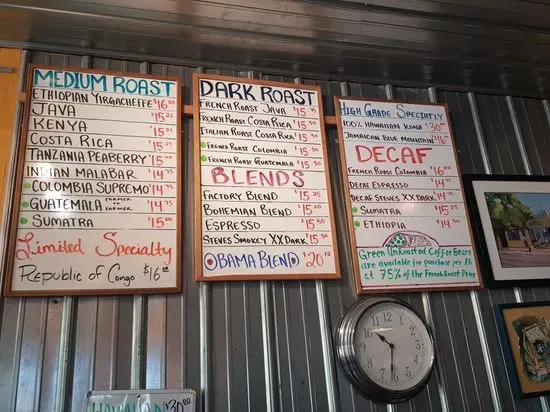 MEDIUM ROAST
ETHIOPIAN YIRGACHEFFE $16.00
JAVA $15.25
KENYA $15.25
COSTA RICA $15.25
TANZANIA PEABERRY $15.50
INDIAN MALABAR $14.75
COLOMBIA SUPREMO $14.75
GUATEMALA FARMER to FARMER $14.75
SUMATRA $15.00
Limited Specialty
Republic of Congo $16
DARK ROAST
FRENCH ROAST JAVA $15.50
FRENCH ROAST COSTA RICA $15.50
ITALIAN ROAST COSTA RICA $15.50
FRENCH ROAST COLOMBIA $15.50
FRENCH ROAST GUATEMALA $15.50
BLENDS
FACTORY BLEND $15.25
BOHEMIAN BLEND $15.50
ESPRESSO $15.50
STEVES SMOKEY XX DARK $15.50
OBAMA BLEND $20.12
HIGH GRADE SPECIALTY
100% HAWAIIAN KONA $30
JAMAICAN BLUE MOUNTAIN $46
DECAF
FRENCH ROAST COLOMBIA $16.00
DECAF ESPRESSO $14.75
DECAF STEVES XX DARK $14.75
SUMATRA $15.25
ETHIOPIA $14.50
Green Unroasted Coffee Beans
are available for purchase per lb
at 75% of the French Roast Price
HAWAIIAN $30.00